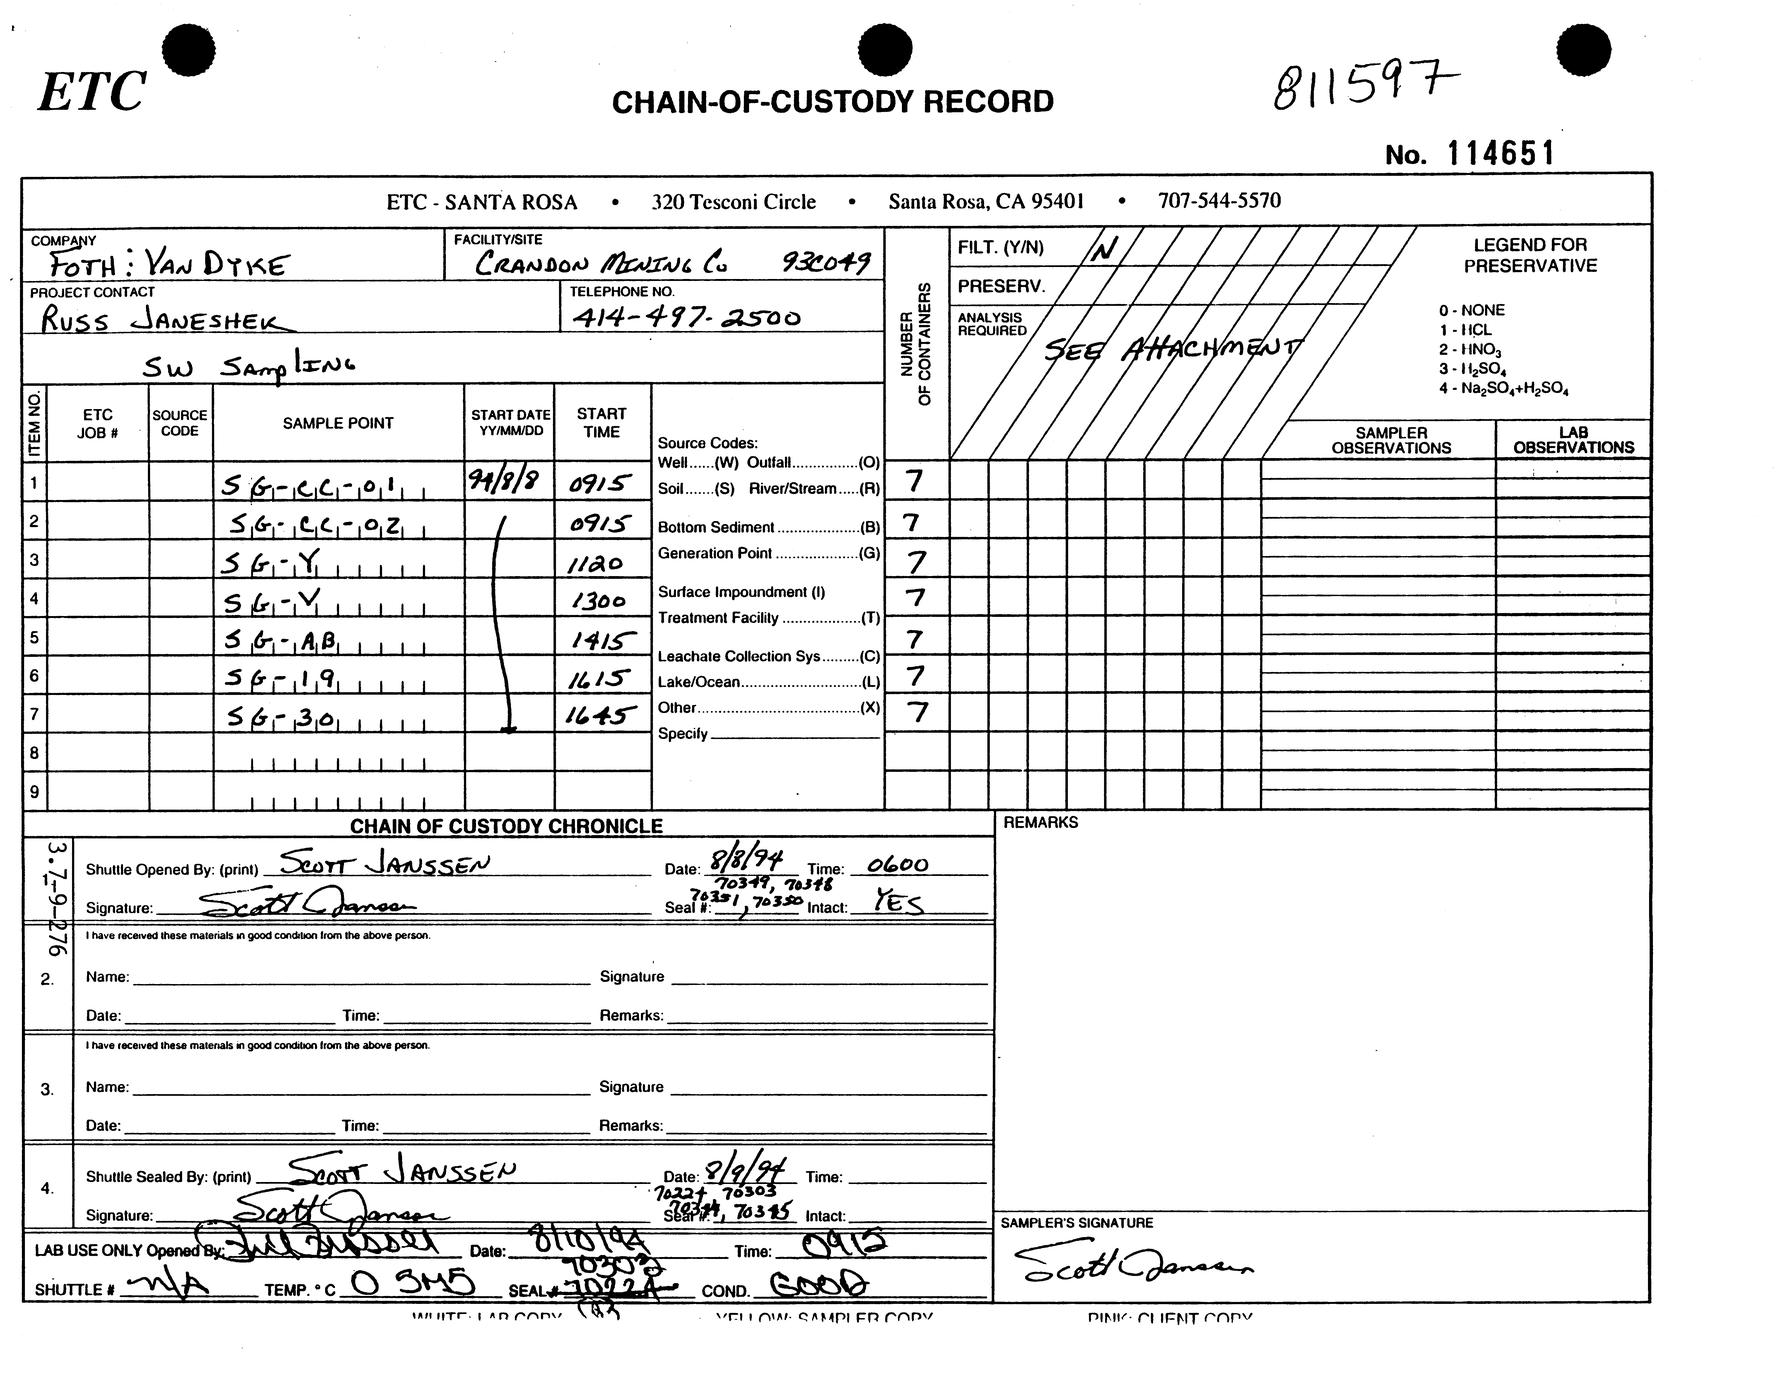 ETC
CHAIN-OF-CUSTODY RECORD
811597
No. 114651
ETC - SANTA ROSA • 320 Tesconi Circle • Santa Rosa, CA 95401 • 707-544-5570
COMPANY
FOTH : VAN DYKE
FACILITY/SITE
CRANDON MINING CO 93C049
PROJECT CONTACT
RUSS JANESHEK
TELEPHONE NO.
414-497-2500
SW SAMPLING
NUMBER OF CONTAINERS
FILT. (Y/N) N
PRESERV.
ANALYSIS REQUIRED
SEE ATTACHMENT
LEGEND FOR
PRESERVATIVE
0 - NONE
1 - HCL
2 - HNO3
3 - H2SO4
4 - Na2SO4+H2SO4
ITEM NO. ETC JOB # SOURCE CODE SAMPLE POINT START DATE YY/MM/DD START TIME
SAMPLER OBSERVATIONS LAB OBSERVATIONS
1 SG-CC-01 94/8/8 0915 7
2 SG-CC-02 0915 7
3 SG-Y 1120 7
4 SG-V 1300 7
5 SG-AB 1415 7
6 SG-19 1615 7
7 SG-30 1645 7
8
9
Source Codes:
Well......(W) Outfall..............(O)
Soil.......(S) River/Stream.....(R)
Bottom Sediment..................(B)
Generation Point..................(G)
Surface Impoundment (I)
Treatment Facility...................(T)
Leachate Collection Sys.........(C)
Lake/Ocean............................(L)
Other.......................................(X)
Specify
CHAIN OF CUSTODY CHRONICLE
REMARKS
3.7-9-276
Shuttle Opened By: (print) SCOTT JANSSEN Date: 8/8/94 Time: 0600
70349, 70348
Signature: Scott Janssen Seal #: 70351, 70350 Intact: YES
I have received these materials in good condition from the above person.
2. Name: Signature
Date: Time: Remarks:
I have received these materials in good condition from the above person.
3. Name: Signature
Date: Time: Remarks:
4. Shuttle Sealed By: (print) SCOTT JANSSEN Date: 8/9/94 Time:
70224 70303
Signature: Scott Janssen Seal #: 70344, 70345 Intact:
SAMPLER'S SIGNATURE
Scott Janssen
LAB USE ONLY Opened By: Date: 8/10/94 Time: 0912
70303
SHUTTLE # N/A TEMP. °C 0 SM5 SEAL# 70224 COND. GOOD
WHITE: LAB COPY YELLOW: SAMPLER COPY PINK: CLIENT COPY